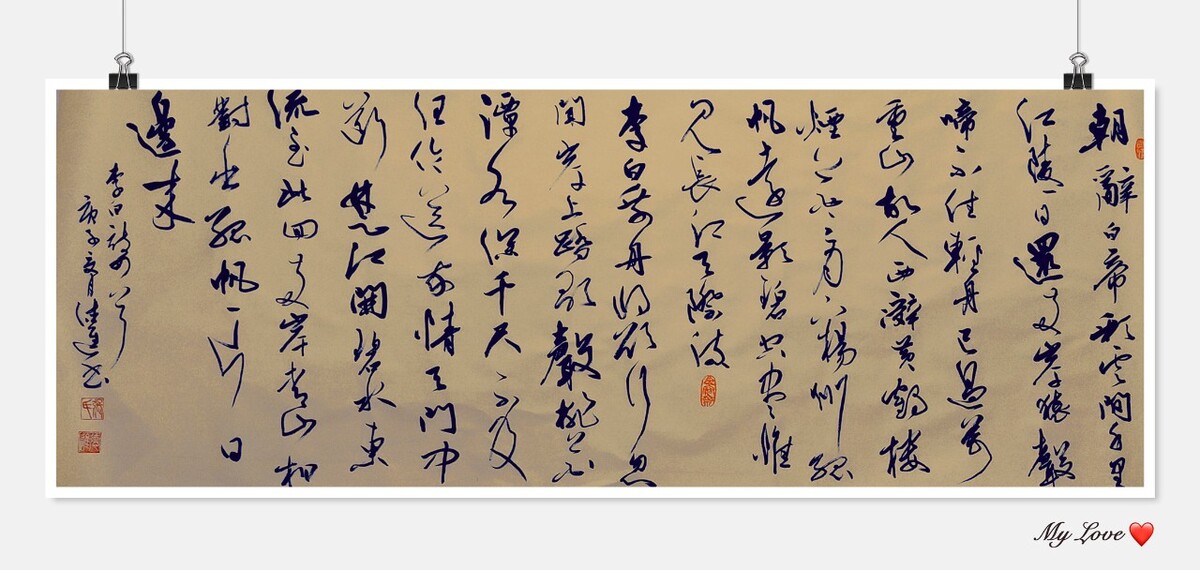 朝辭白帝彩雲間千里
江陵一日還兩岸猿聲
啼不住輕舟已過萬
重山故人西辭黃鶴樓
煙花三月下楊州孤
帆遠影碧空盡惟
見長江天際流
李白乘舟將欲行忽
聞岸上踏歌聲桃花
潭水深千尺不及
汪倫送我情天門中
斷楚江開碧水東
流至此回兩岸青山相
對出孤帆一片日
邊來
李白詩四首
庚子月书
My Love ❤️